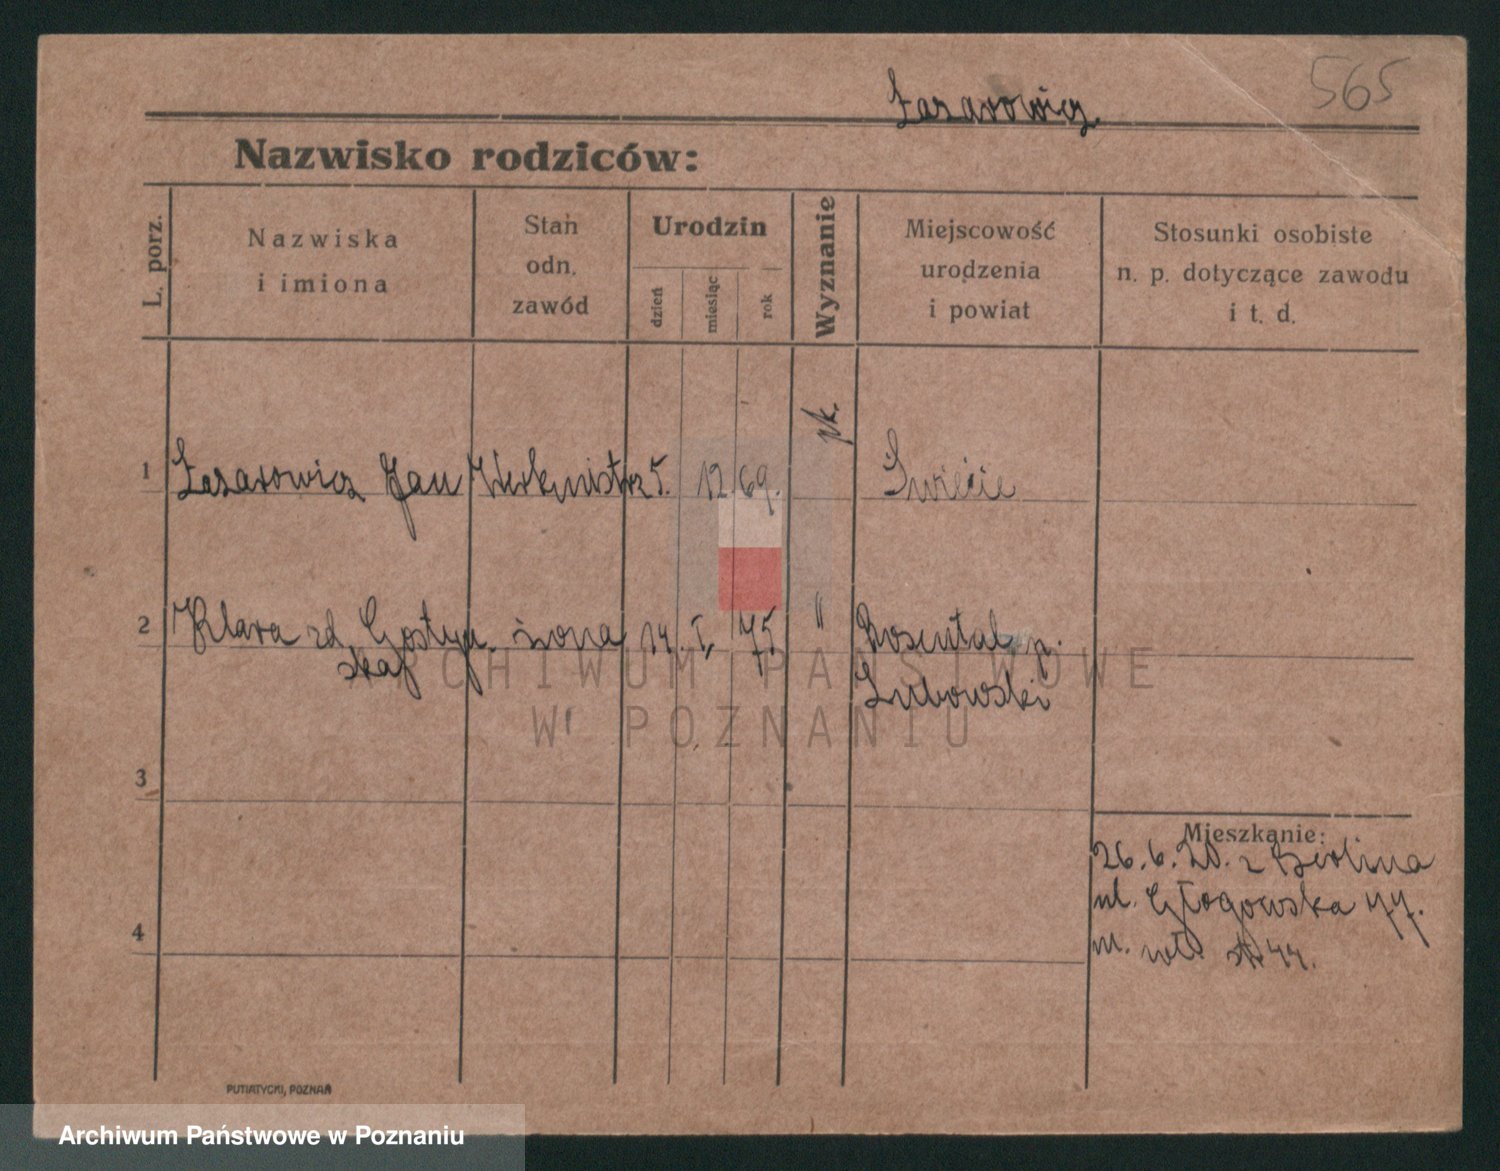 565
Łazarowicz
Nazwisko rodziców:
L. porz.
Nazwiska
i imiona
Stan
odn.
zawód
Urodzin
dzień
miesiąc
rok
Wyznanie
Miejscowość
urodzenia
i powiat
Stosunki osobiste
n. p. dotyczące zawodu
i t. d.
1 Łazarowicz Jan Werkmistrz 5. 12. 69. rk. Świecie
2 Klara zd. Gostyń- żona 14. I. 75 " Rosental p.
skaj Lubowski
3
4
Mieszkanie:
26. 6. 20. z Berlina
ul. Głogowska 77.
m. wł. 44.
PUTIATYCKI, POZNAŃ
ARCHIWUM PAŃSTWOWE
W POZNANIU
Archiwum Państwowe w Poznaniu